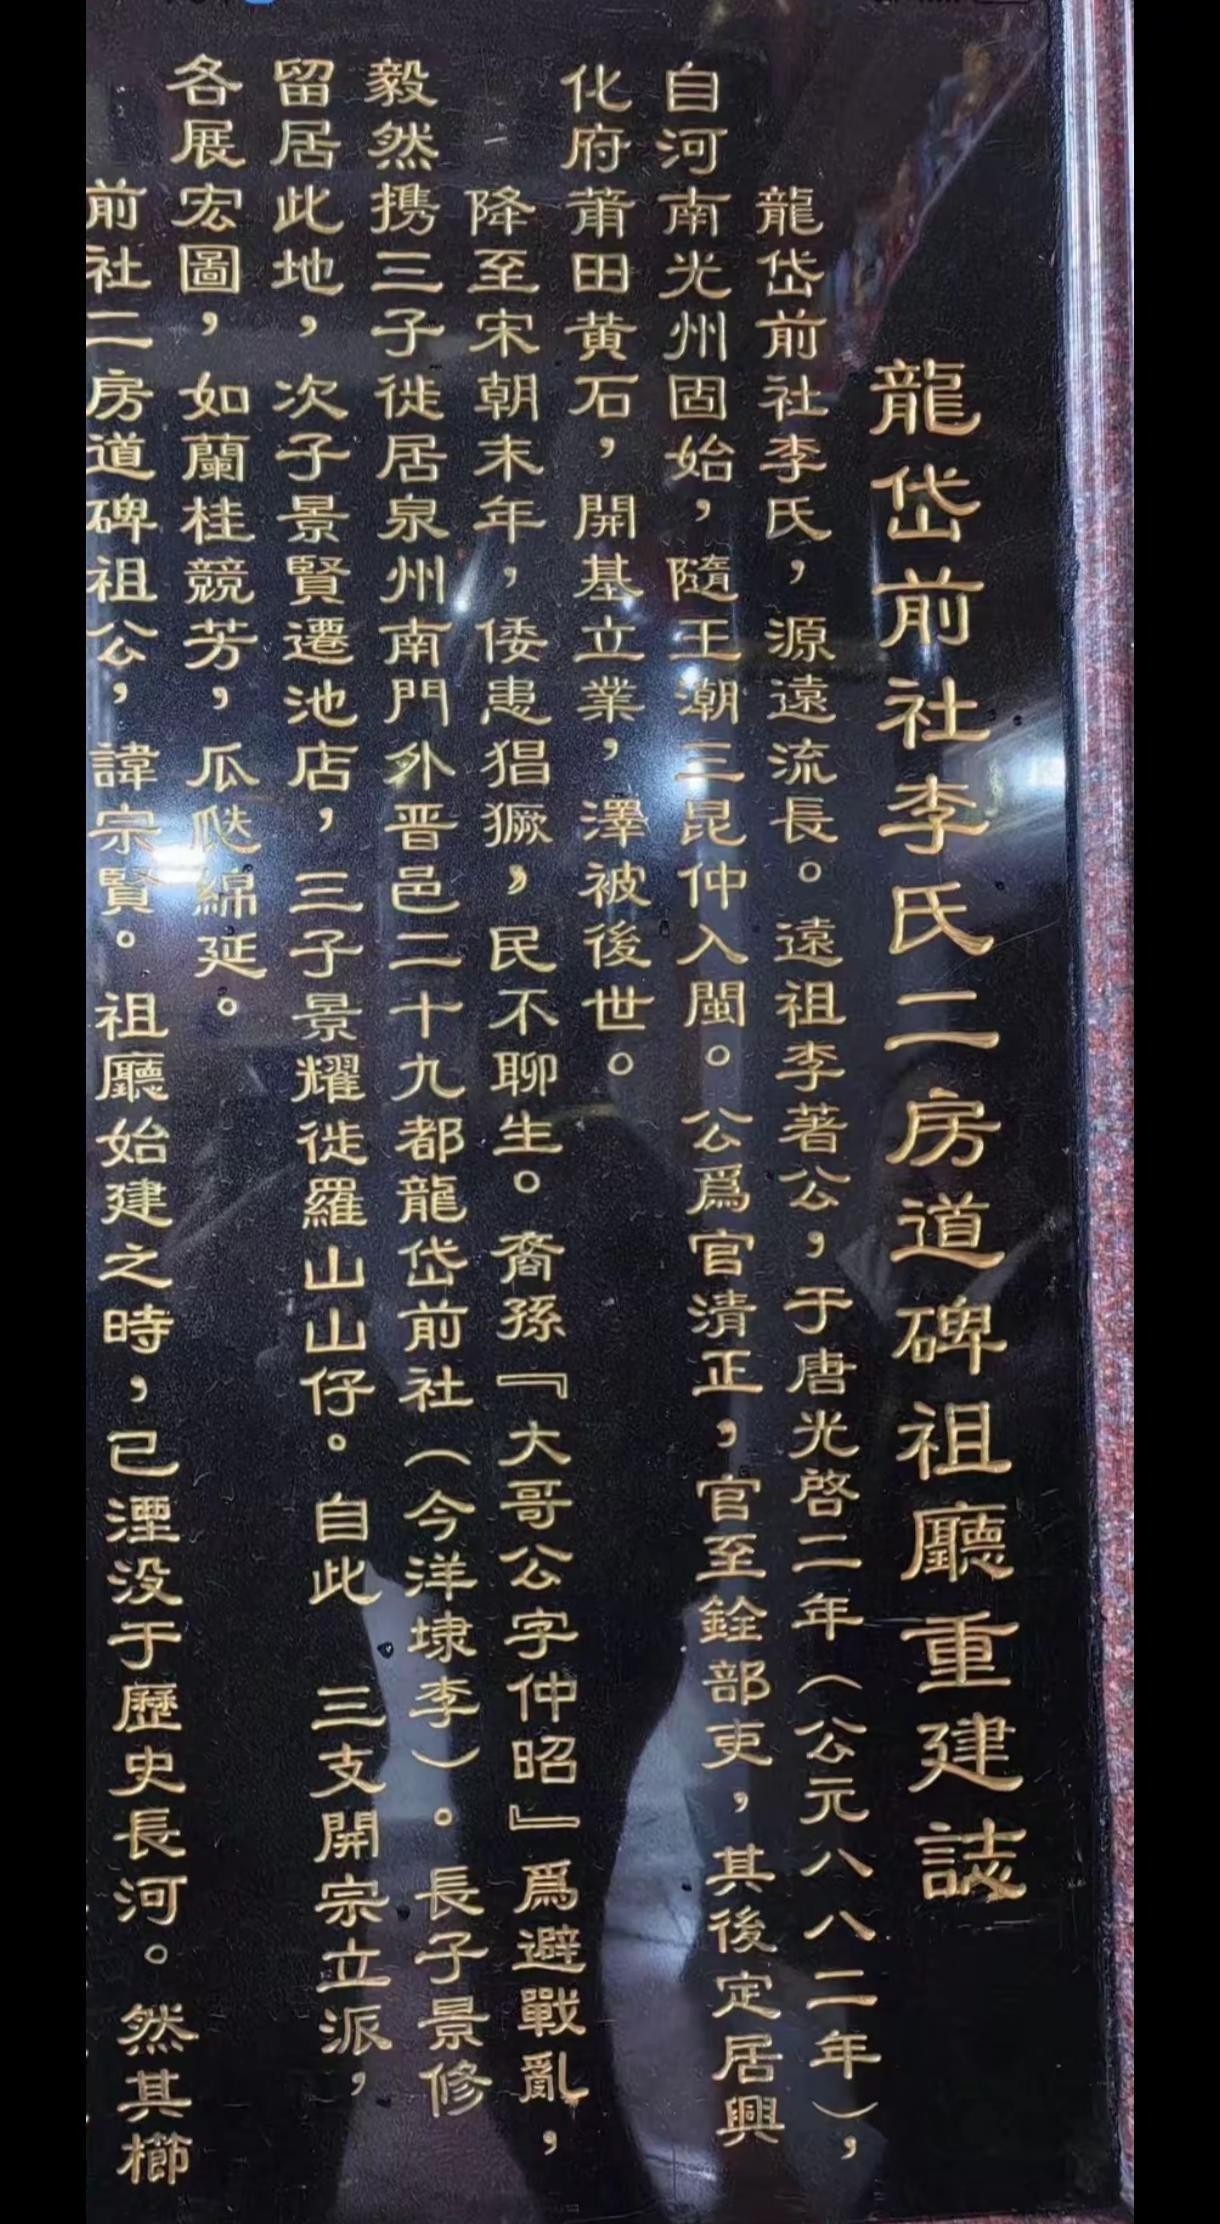 龍岱前社李氏二房道碑祖廳重建誌
龍岱前社李氏，源遠流長。遠祖李著公，于唐光啓二年（公元八八二年），
自河南光州固始，隨王潮三昆仲入閩。公爲官清正，官至銓部吏，其後定居興
化府莆田黄石，開基立業，澤被後世。
降至宋朝末年，倭患猖獗，民不聊生。裔孫『大哥公字仲昭』爲避戰亂，
毅然携三子徙居泉州南門外晋邑二十九都龍岱前社（今洋埭李）。長子景修
留居此地，次子景賢遷池店，三子景耀徙羅山山仔。自此 三支開宗立派，
各展宏圖，如蘭桂競芳，瓜瓞綿延。
前社二房道碑祖公，諱宗賢。祖廳始建之時，已湮没于歷史長河。然其櫛